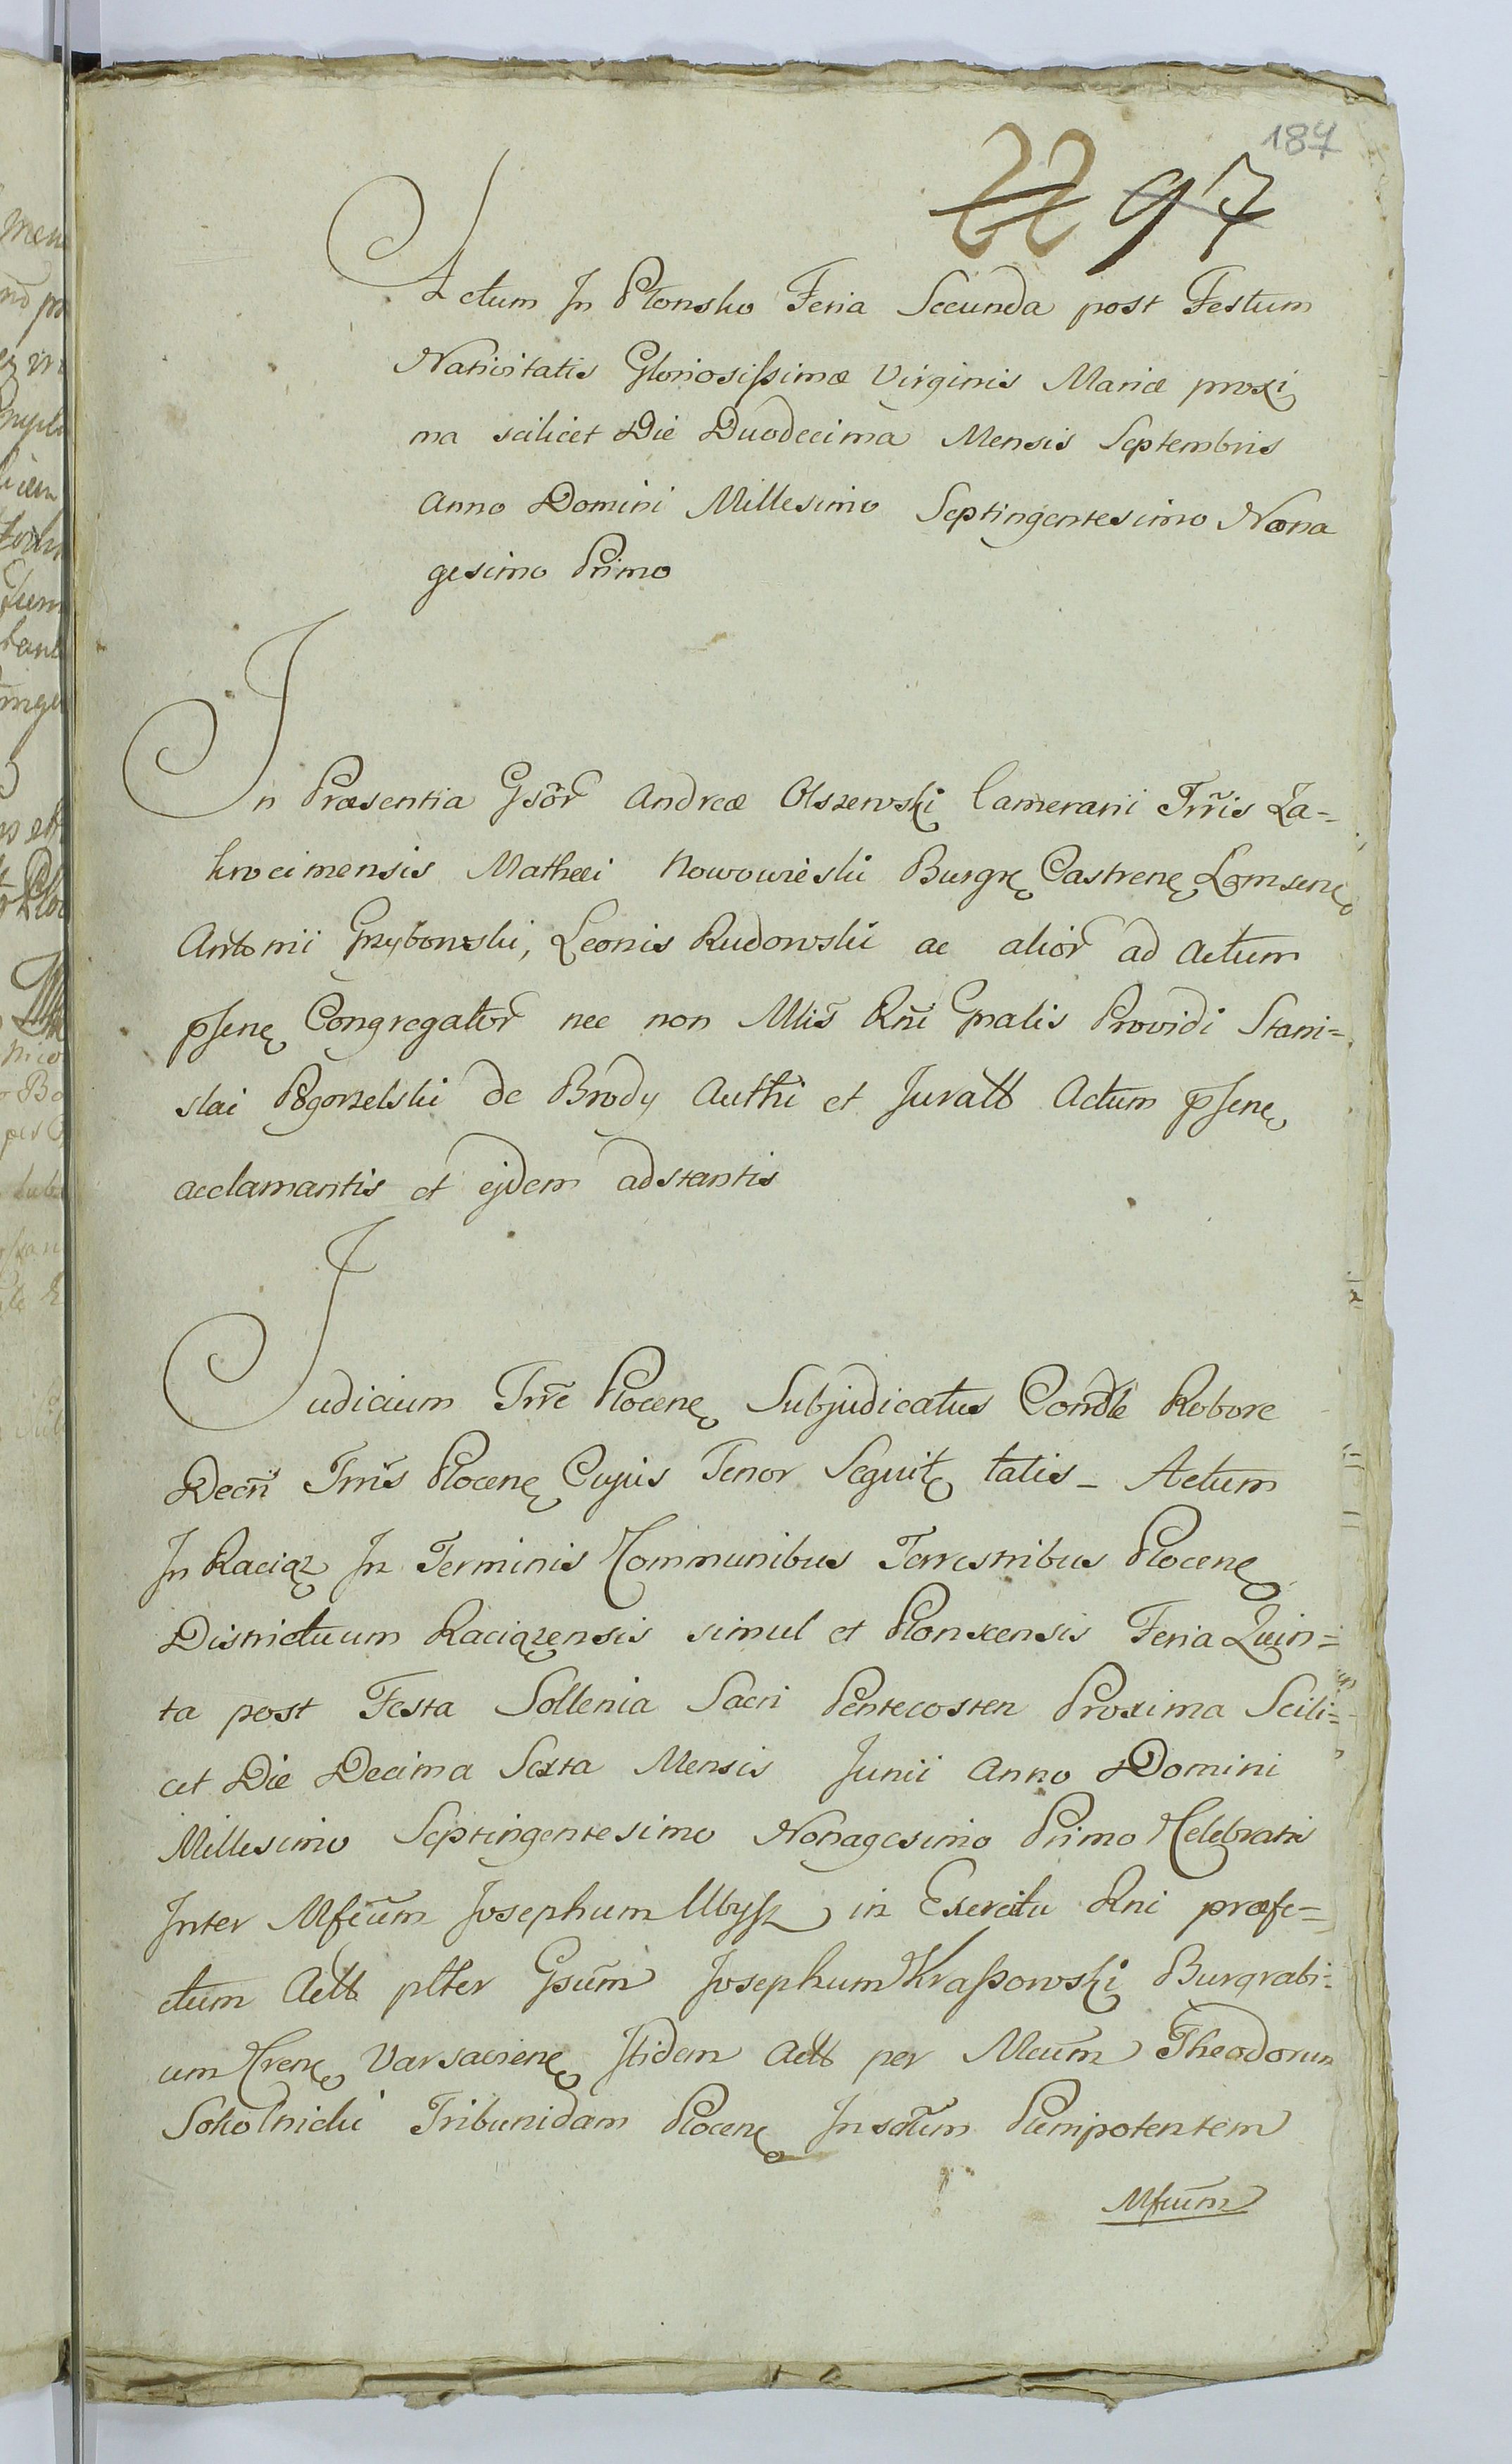 187
22 97
Actum In Płonsko Feria Secunda post Festum
Nativitatis Gloriosissimæ Virginis Mariæ proxi
ma scilicet Die Duodecima Mensis Septembris
Anno Domini Millesimo Septingentesimo Nona
gesimo Primo
In Præsentia Gsõr Andreæ Olszewski Camerarii Trr̃is Za=
krocimensis Mathæi Nowowieski Burgrę Castrenę Lomsenę
Antonii Grzybowski, Leonis Rudowski ac aliõr ad Actum
psenę Congregatõr nec non Mlis̃ Rñi Gnalis Providi Stani=
slai Pogorzelski de Brody Authi et Juratt Actum psenę
acclamantis et ejdem adstantis
Judicium Trr̃e Plocenę Subjudicatus Condle Robore
Decr̃i Trr̃is Plocenę Cujus Tenor Sequitę talis _ Actum
In Raciąz In Terminis Communibus Terrestribus Plocenę
Districtuum Raciązensis simul et Plonscensis Feria Quin=
ta post Festa Sollenia Sacri Pentecosten Proxima Scili=
cet Die Decima Sexta Mensis Junii Anno Domini
Millesimo Septingentesimo Nonagesimo Primo Celebratis
Inter Mfcũm Josephum Ubysz in Exercitu Rni præfe=
ctum Actt plter Gsũm Josephum Krassowski Burgrabi=
um Crenę Varsavienę Itidem Actt per Mcũm Theodorum
Sokolnicki Tribunidam Plocenę Insctum Plenipotentem
Mfcũm